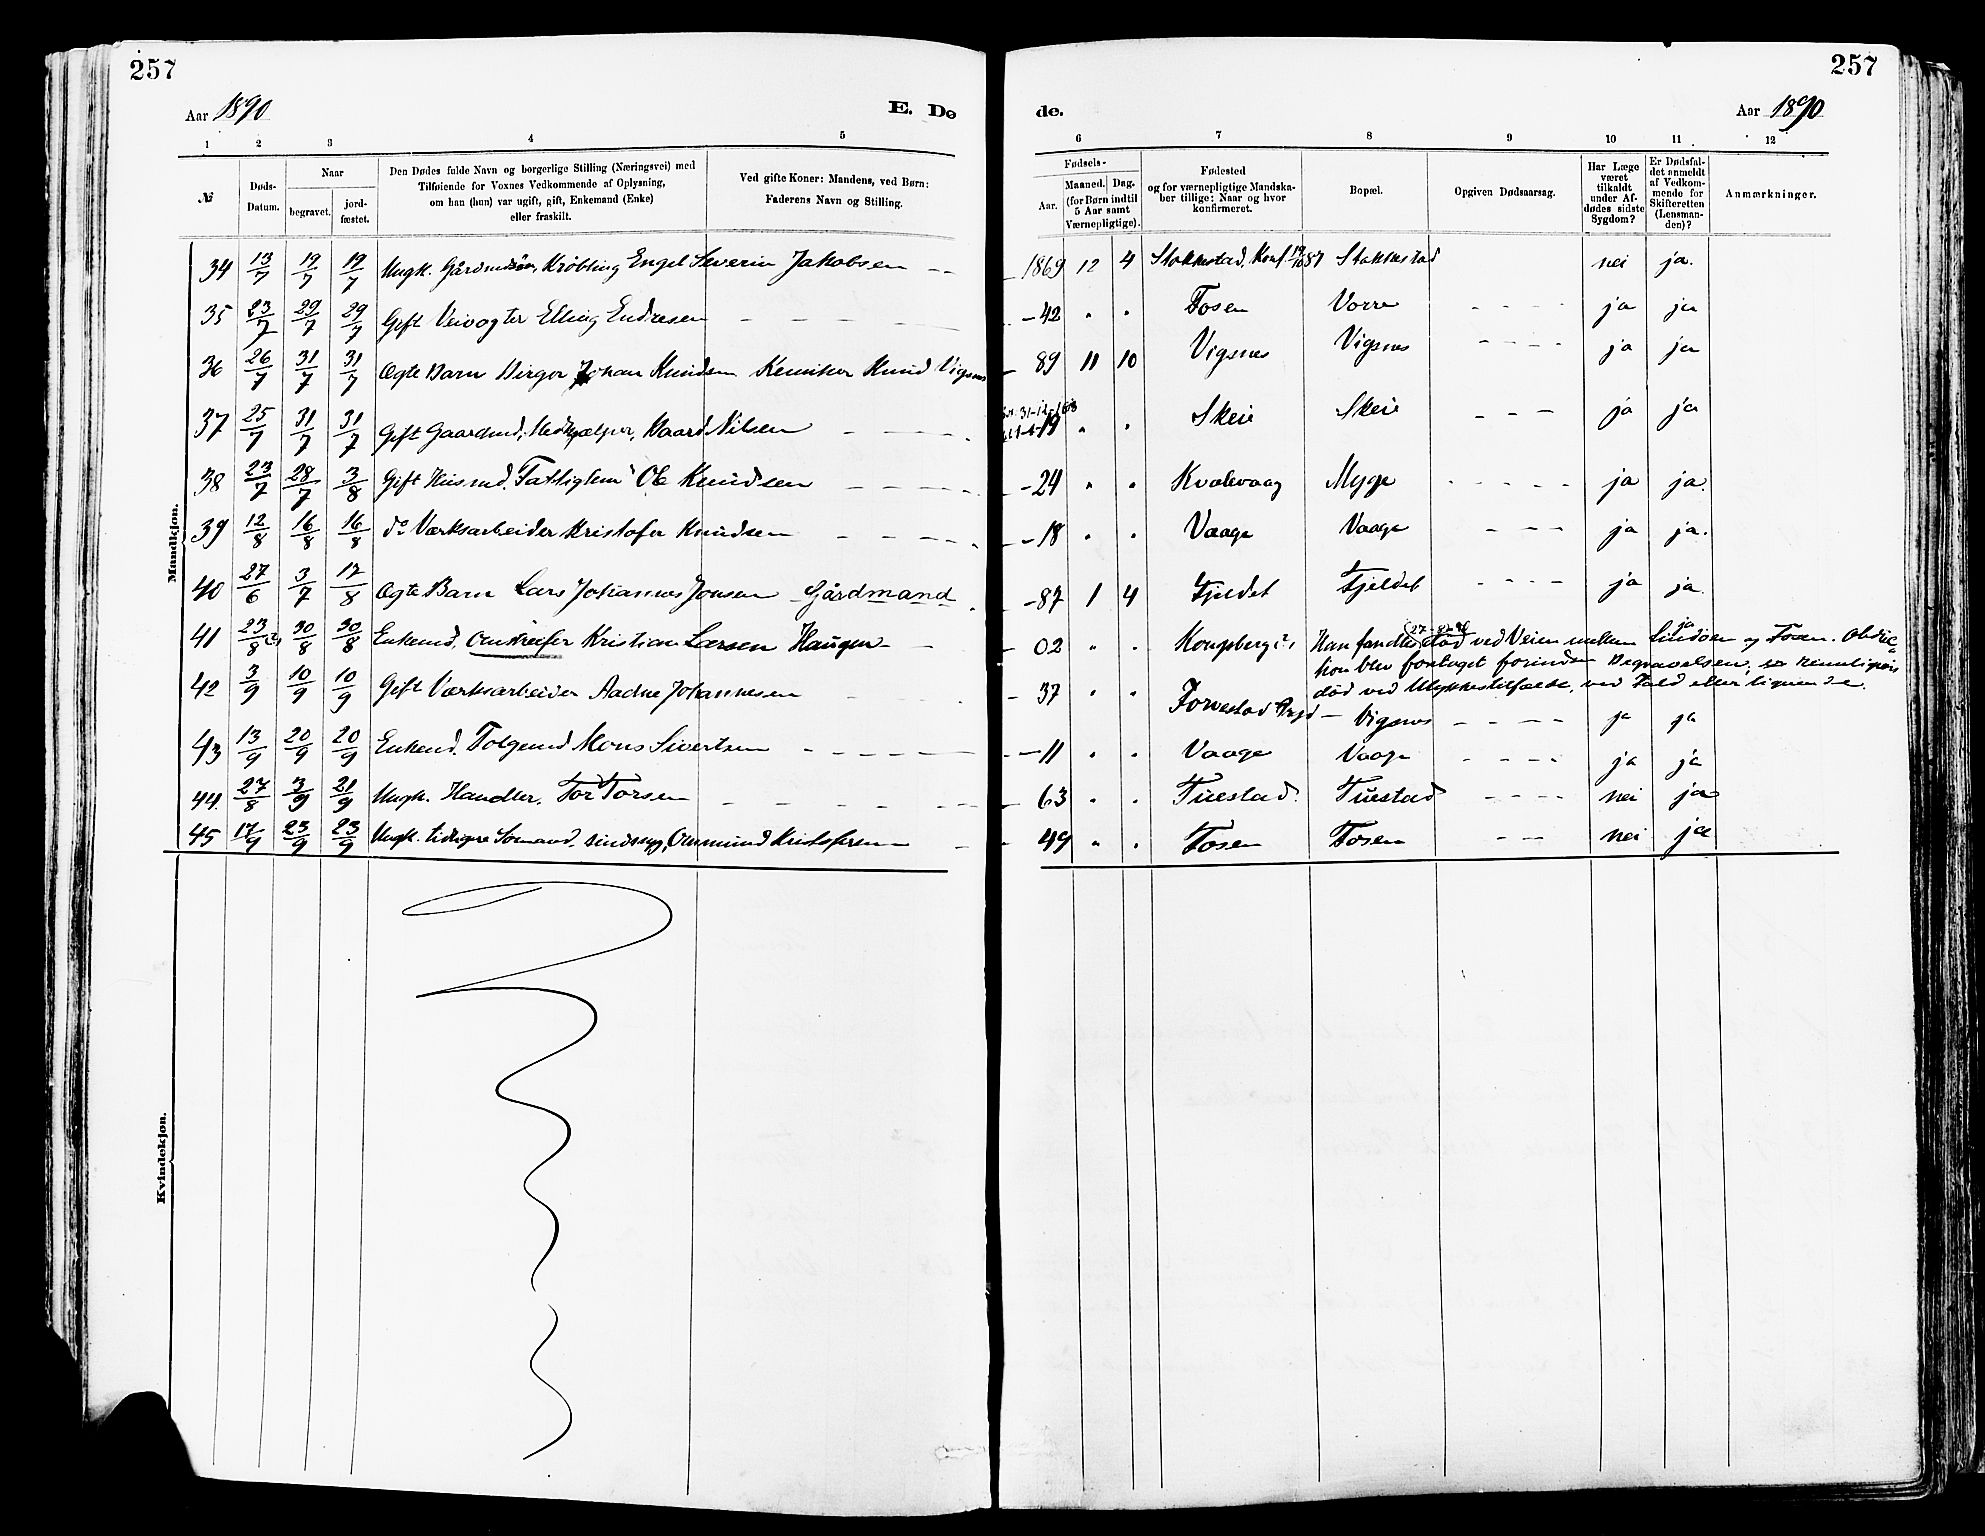 257
257
Aar 1890
E. Dø
de.
Aar 1890
1 2 3 4 5
6 7 8 9 10 11 12
№
Døds-
Datum.
Naar
begravet.
jord-
fæstet.
Den Dødes fulde Navn og borgerlige Stilling (Næringsvei) med
Tilføiende for Voxnes Vedkommende af Oplysning,
om han (hun) var ugift, gift, Enkemand (Enke)
eller fraskilt.
Ved gifte Koner: Mandens, ved Børn:
Faderens Navn og Stilling.
Fødsels-
Aar.
Maaned. Dag.
(for Børn indtil
5 Aar samt
Værnepligtige).
Fødested
og for værnepligtige Mandska-
ber tillige: Naar og hvor
konfirmeret.
Bopæl.
Opgiven Dødsaarsag.
Har Læge
været
tilkaldt
under Af-
dødes sidste
Sygdom?
Er Dødsfal-
det anmeldt
af Vedkom-
mende for
Skifteretten
(Lensman-
den)?
Anmærkninger.
Mandkjøn.
34 13/7 19/7 19/7 Ungk. Gårdmdsøn, Krøbling Engel Severin Jakobsen – – – 1869 12 4 Stokkestad, Konf. 87 Stokkestad nei ja.
35 23/7 29/7 29/7 Gift Veivogter Elling Endresen – – – – – 42 " " Fosen Vorre – – – – ja ja
36 26/7 31/7 31/7 Ægte Barn Birger Johan Knudsen Kemiker Knud Vigsnes – 89 11 10 Vigsnes Vigsnes – – – – ja ja
37 25/7 31/7 31/7 Gift Gaardmd, Medhjælper, Baard Nilsen – – – 19 " " Skeie Skeie – – – ja ja
38 23/7 28/7 3/8 Gift Husmd. Fattiglem Ole Knudsen – – – – 24 " " Kvalevaag Myge – – – – ja ja.
39 12/8 16/8 16/8 do Værksarbeider Kristofer Knudsen – – – – 18 " " Vaage Vaage – – – ja ja.
40 27/6 3/7 17/8 Ægte Barn Lars Johannes Jonsen Gårdmand – 87 1 4 Fjeldet Fjeldet – – – – ja ja.
41 23/8(?) 30/8 30/8 Enkemd, Omstreifer Kristian Larsen Haugen – – 02 " " Kongsberg(?) Han fandtes død ved Veien mellem Lindøen og Fosen. Obduc=
ja
tion blev foretaget forinden Begravelsen, er rimeligvis
død ved Ulykkestilfælde, ved Fald eller lignende.
42 3/9 10/9 10/9 Gift Værksarbeider Aadne Johannesen – – 37 " " Torvestad Prgd – Vigsnes – – – – ja ja
43 13/9 20/9 20/9 Enkemd. Folgemd Mons Sivertsen – – – – 11 " " Vaage Vaage – – – – ja ja
44. 27/8 3/9 21/9 Ungk. Handler, Tor Torsen – – – – – 63 " " Tuestad. Tuestad – – – – nei ja
45 17/9 23/9 23/9 Ungk. tidligere Sömand, sindssyg, Ommund Kristofersen – – – 49 " " Fosen Fosen – – nei ja
Kvindekjøn.